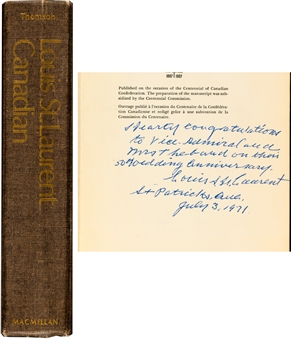 Thomson
Louis St. Laurent:
Canadian
MACMILLAN
1867 | 1967
Published on the occasion of the Centennial of Canadian
Confederation. The preparation of the manuscript was sub-
sidized by the Centennial Commission.
Ouvrage publié à l'occasion du Centenaire de la Confédéra-
tion Canadienne et rédigé grâce à une subvention de la
Commission du Centenaire.
Hearty congratulations
to Vice Admiral and
Mrs on their
50th wedding anniversary.
Louis S. St. Laurent
St Patrick's, Que.
July 3, 1971